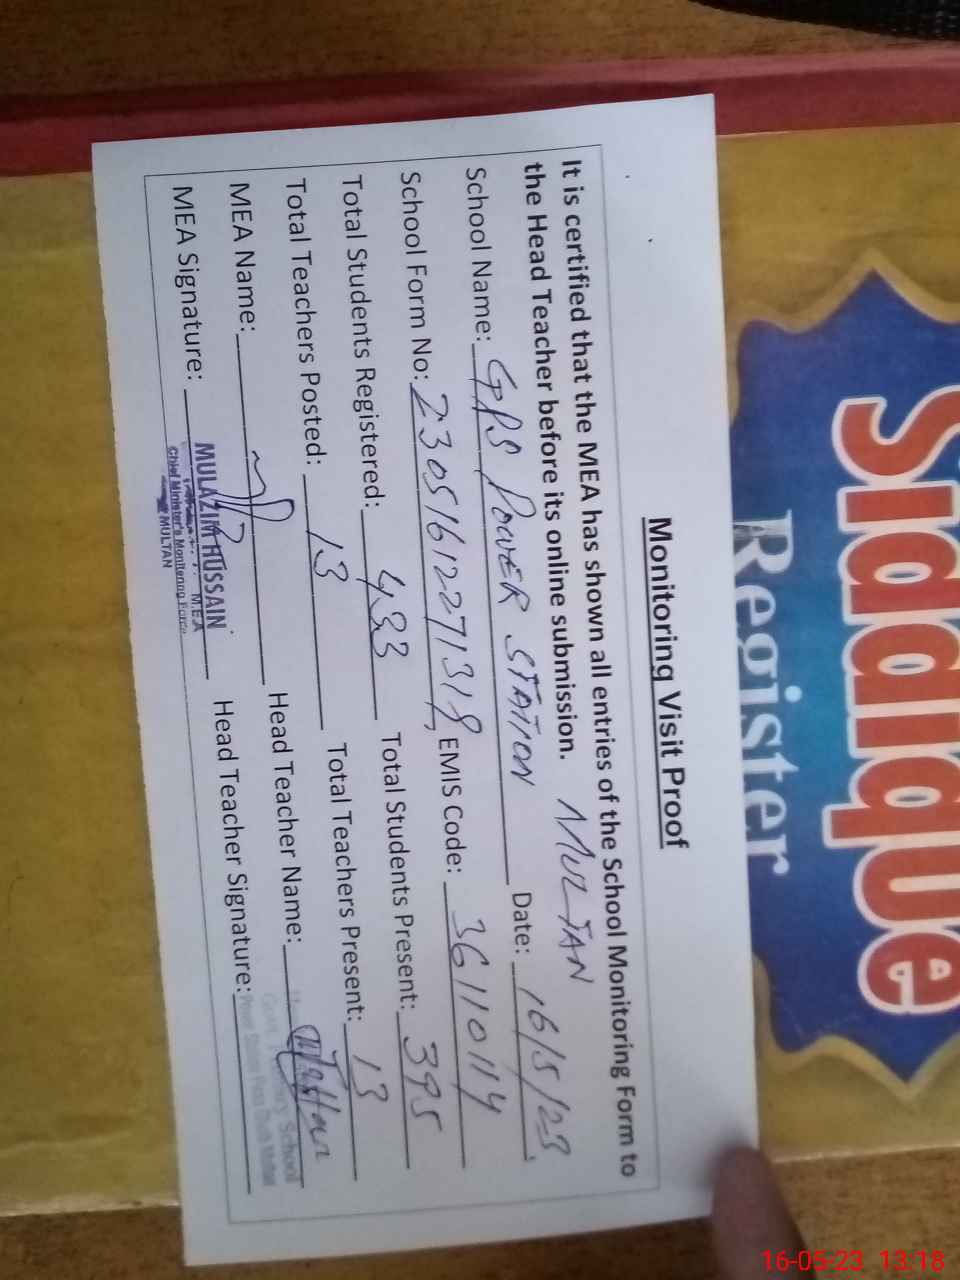 Siddique
Register
Monitoring Visit Proof
It is certified that the MEA has shown all entries of the School Monitoring Form to
the Head Teacher before its online submission. MULTAN
School Name: GPS POWER STATION Date: 16/5/23
School Form No: 23051612271318, EMIS Code: 36110114
Total Students Registered: 433 Total Students Present: 395
Total Teachers Posted: 13 Total Teachers Present: 13
MEA Name: Head Teacher Name:
MEA Signature: Head Teacher Signature:
MULAZIM HUSSAIN
M.E.A
Chief Minister's Monitoring Force
MULTAN
School
16-05-23 13:18